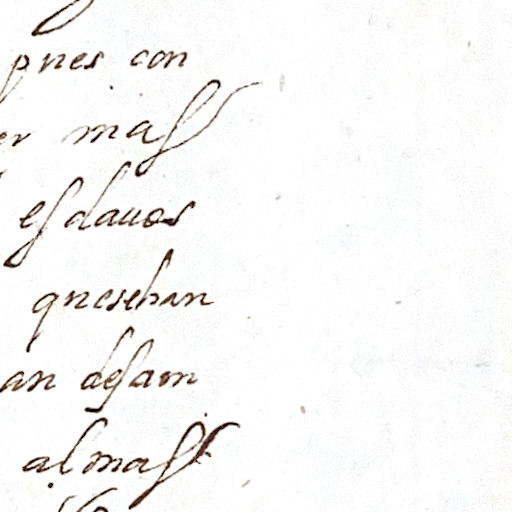 pues con
er mas
esclauos
queseban
an desam
almas